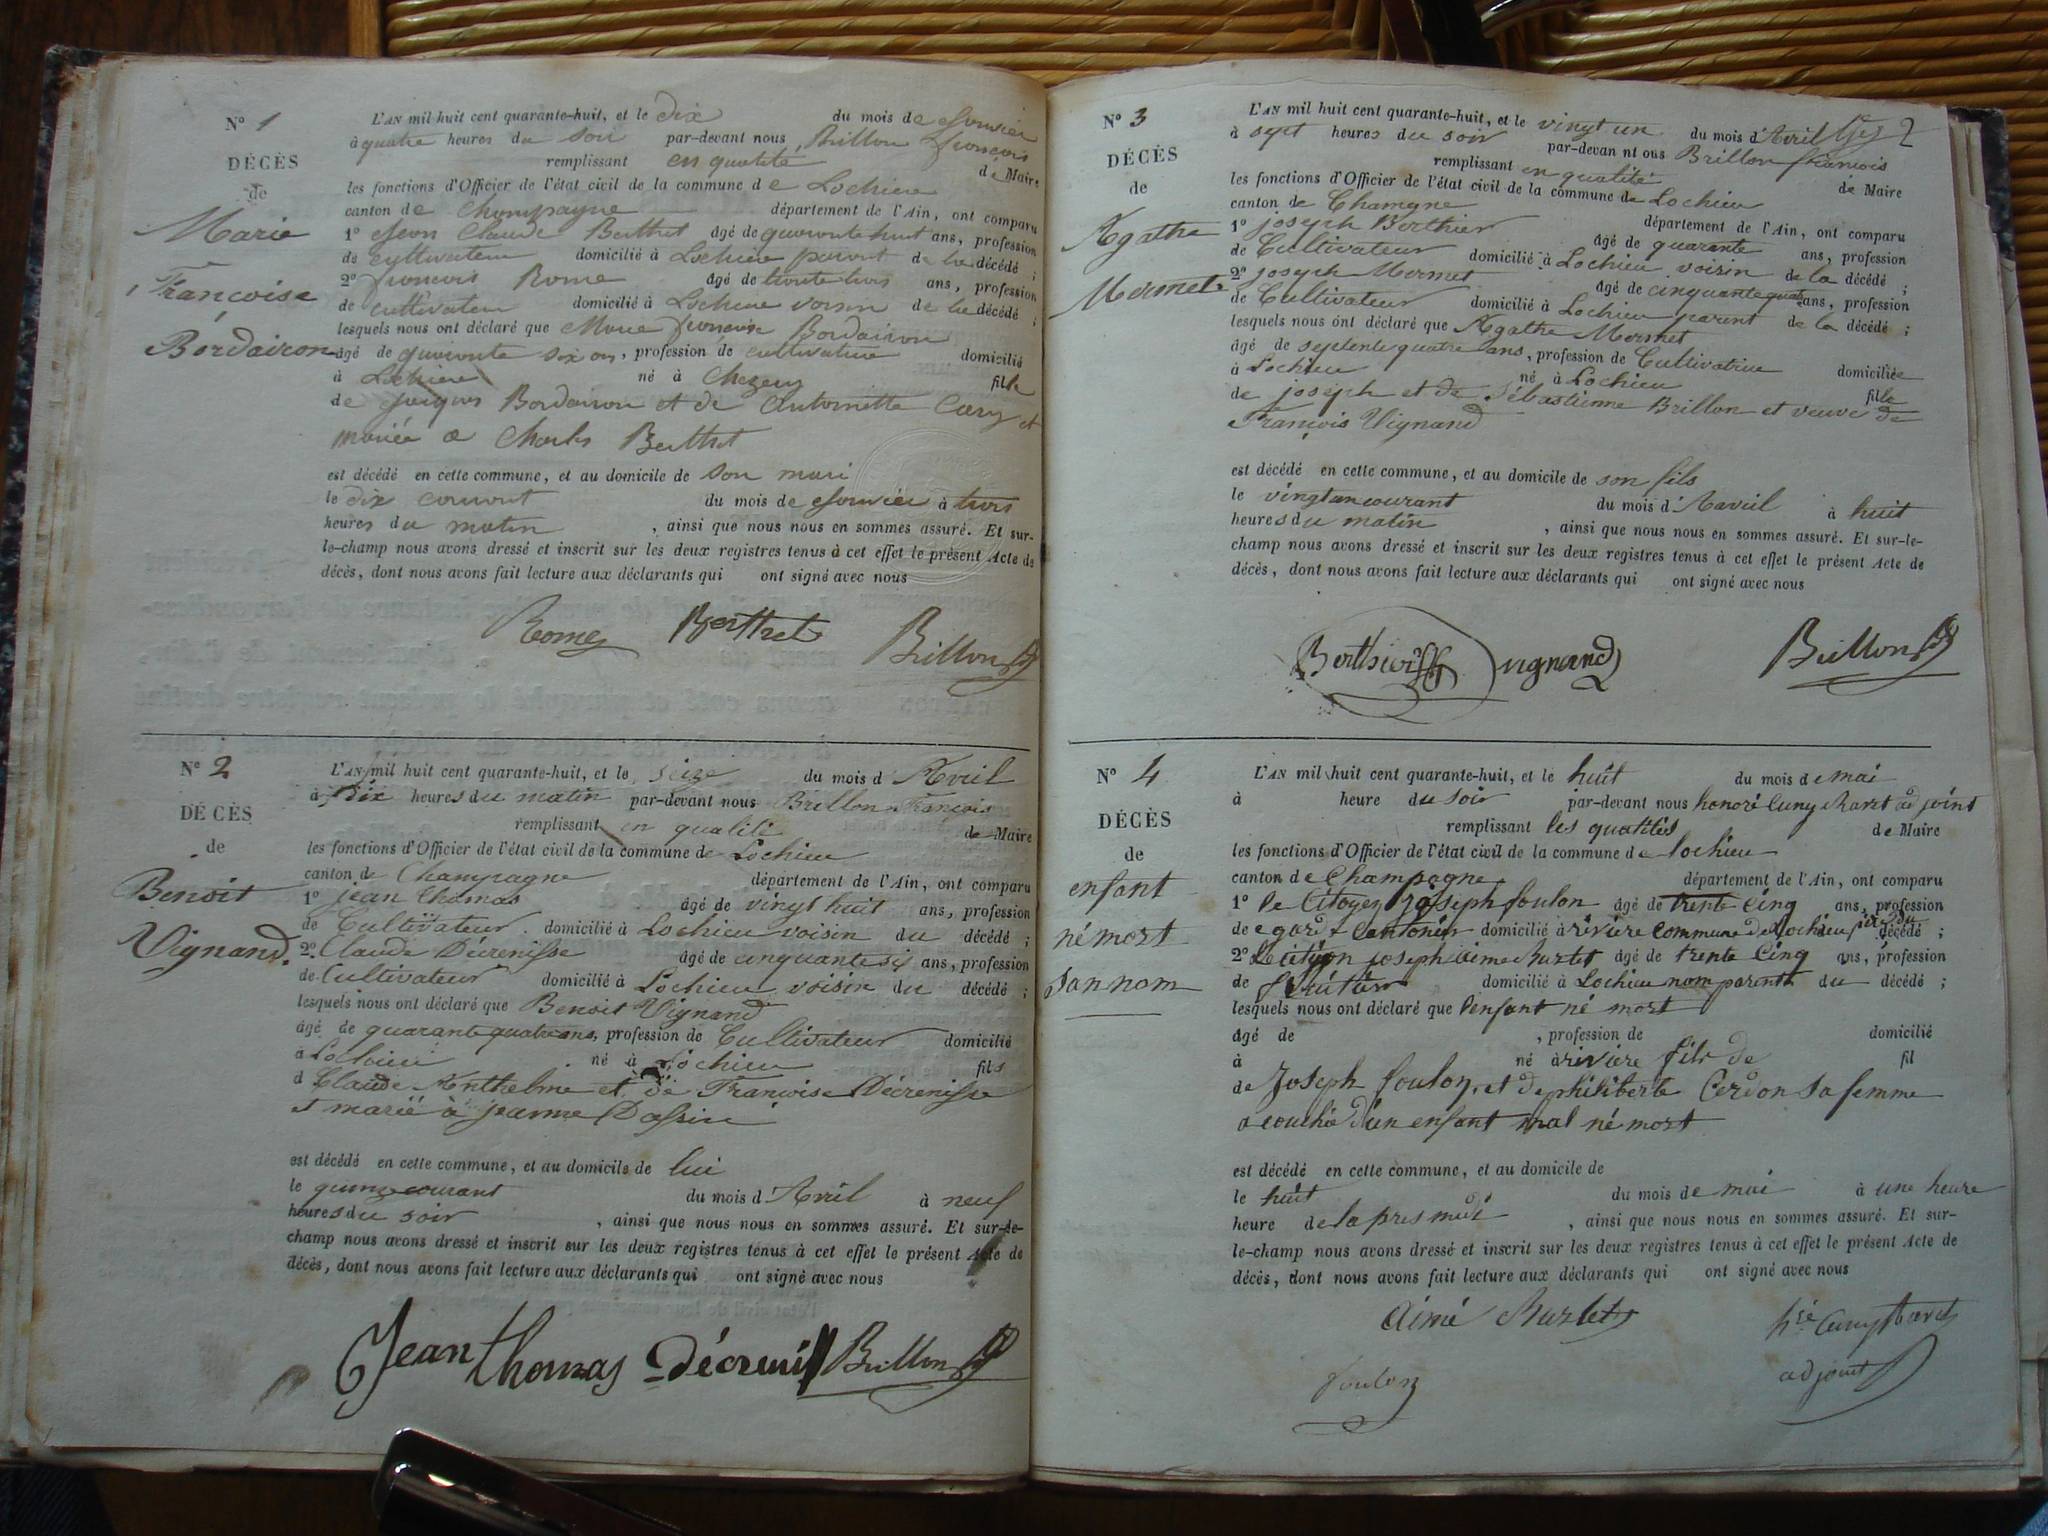 N° 1
DÉCÈS
de
Marie
Françoise
Bordairon
L'AN mil huit cent quarante-huit, et le dix du mois de Janvier
à quatre heures du soir par-devant nous Brillon françois
remplissant en qualité de Maire
les fonctions d'Officier de l'état civil de la commune de Lochieu
canton de Champagne département de l'Ain, ont comparu
1° Jean Claude Berthet âgé de quarante huit ans, profession
de cultivateur domicilié à Lochieu parent de la décédé ;
2° françois Rome âgé de trente trois ans, profession
de cultivateur domicilié à Lochieu voisin de la décédé ;
lesquels nous ont déclaré que Marie françoise Bordairon
âgé de quarante six an, profession de cultivatrice domicilié
à Lochieu né à Chezery fille
de Jacques Bordairon et de Antoinette Cary et
mariée a Charles Berthet
est décédé en cette commune, et au domicile de son mari
le dix courant du mois de Janvier à trois
heures du matin , ainsi que nous nous en sommes assuré. Et sur-
le-champ nous avons dressé et inscrit sur les deux registres tenus à cet effet le présent Acte de
décès, dont nous avons fait lecture aux déclarants qui ont signé avec nous
Rome Berthet Brillon
N° 2
DÉCÈS
de
Benoit
Vignand.
L'AN mil huit cent quarante-huit, et le seize du mois d'Avril
à dix heures du matin par-devant nous Brillon François
remplissant en qualité de Maire
les fonctions d'Officier de l'état civil de la commune de Lochieu
canton de Champagne département de l'Ain, ont comparu
1° jean Thomas âgé de vingt huit ans, profession
de Cultivateur domicilié à Lochieu voisin du décédé ;
2° Claude Décrenisse âgé de cinquante six ans, profession
de Cultivateur domicilié à Lochieu voisin du décédé ;
lesquels nous ont déclaré que Benoit Vignand
âgé de quarante quatre ans, profession de Cultivateur domicilié
à Lochieu né à Lochieu fils
d Claude Anthelme et de Françoise Décrenisse
et marié à jeanne Dassin
est décédé en cette commune, et au domicile de lui
le quinze courant du mois d'Avril à neuf
heures du soir , ainsi que nous nous en sommes assuré. Et sur-le-
champ nous avons dressé et inscrit sur les deux registres tenus à cet effet le présent Acte de
décès, dont nous avons fait lecture aux déclarants qui ont signé avec nous
Jean thomas Décreni Brillon
N° 3
DÉCÈS
de
Agathe
Mermet
L'AN mil huit cent quarante-huit, et le vingt un du mois d'Avril 2
à sept heures du soir par-devan nt ous Brillon françois
remplissant en qualité de Maire
les fonctions d'Officier de l'état civil de la commune de Lochieu
canton de Chamgne département de l'Ain, ont comparu
1° joseph Berthier âgé de quarante ans, profession
de Cultivateur domicilié à Lochieu voisin de la décédé ;
2° joseph Mermet âgé de cinquante quatre ans, profession
de Cultivateur domicilié à Lochieu parent de la décédé ;
lesquels nous ont déclaré que Agathe Mermet
âgé de septente quatre ans, profession de Cultivatrice domiciliée
à Lochieu né à Lochieu fille
de joseph et de Sébastienne Brillon et veuve de
François Vignand
est décédé en cette commune, et au domicile de son fils
le vingt un courant du mois d'Aavril à huit
heures du matin , ainsi que nous nous en sommes assuré. Et sur-le-
champ nous avons dressé et inscrit sur les deux registres tenus à cet effet le présent Acte de
décès, dont nous avons fait lecture aux déclarants qui ont signé avec nous
Berthier vignand Brillon
N° 4
DÉCÈS
de
enfant
né mort
san nom
L'AN mil huit cent quarante-huit, et le huit du mois de mai
à heure du soir par-devant nous honoré Cuny Maret adjoint
remplissant les qualités de Maire
les fonctions d'Officier de l'état civil de la commune de lochieu
canton de Champagne département de l'Ain, ont comparu
1° le Citoyen joseph foulon âgé de trente Cinq ans, profession
de gard domicilié à rivière commune de lochieu père du décédé ;
2° joseph aime âgé de trente Cinq ans, profession
de domicilié à Lochieu nom parent du décédé ;
lesquels nous ont déclaré que lenfant né mort
âgé de , profession de domicilié
à né à rivière fils de fil
de Joseph foulon, et de philiberte Cerdon sa femme
acouchée d'un enfant mal né mort
est décédé en cette commune, et au domicile de
le huit du mois de mai à une heure
heure de la pres midi , ainsi que nous nous en sommes assuré. Et sur-
le-champ nous avons dressé et inscrit sur les deux registres tenus à cet effet le présent Acte de
décès, dont nous avons fait lecture aux déclarants qui ont signé avec nous
aimé hré Cuny Maret
foulon adjoint